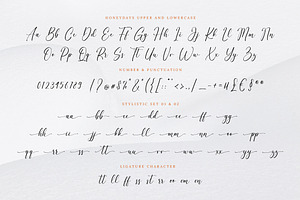 HONEYDAYS UPPER AND LOWERCASE
Aa Bb Cc Dd Ee Ff Gg Hh Ii Jj Kk Ll Mm Nn
Oo Pp Qq Rr Ss Tt Uu Vv Ww Xx Yy Zz
NUMBER & PUNCTUATION
STYLISTIC SET 01 & 02
aa bb cc dd ee ff gg
hh ii jj kk ll mm nn oo pp
qq rr ss tt uu vv ww xx yy zz
LIGATURE CHARACTER
tt ll ff ss st rr oo om on